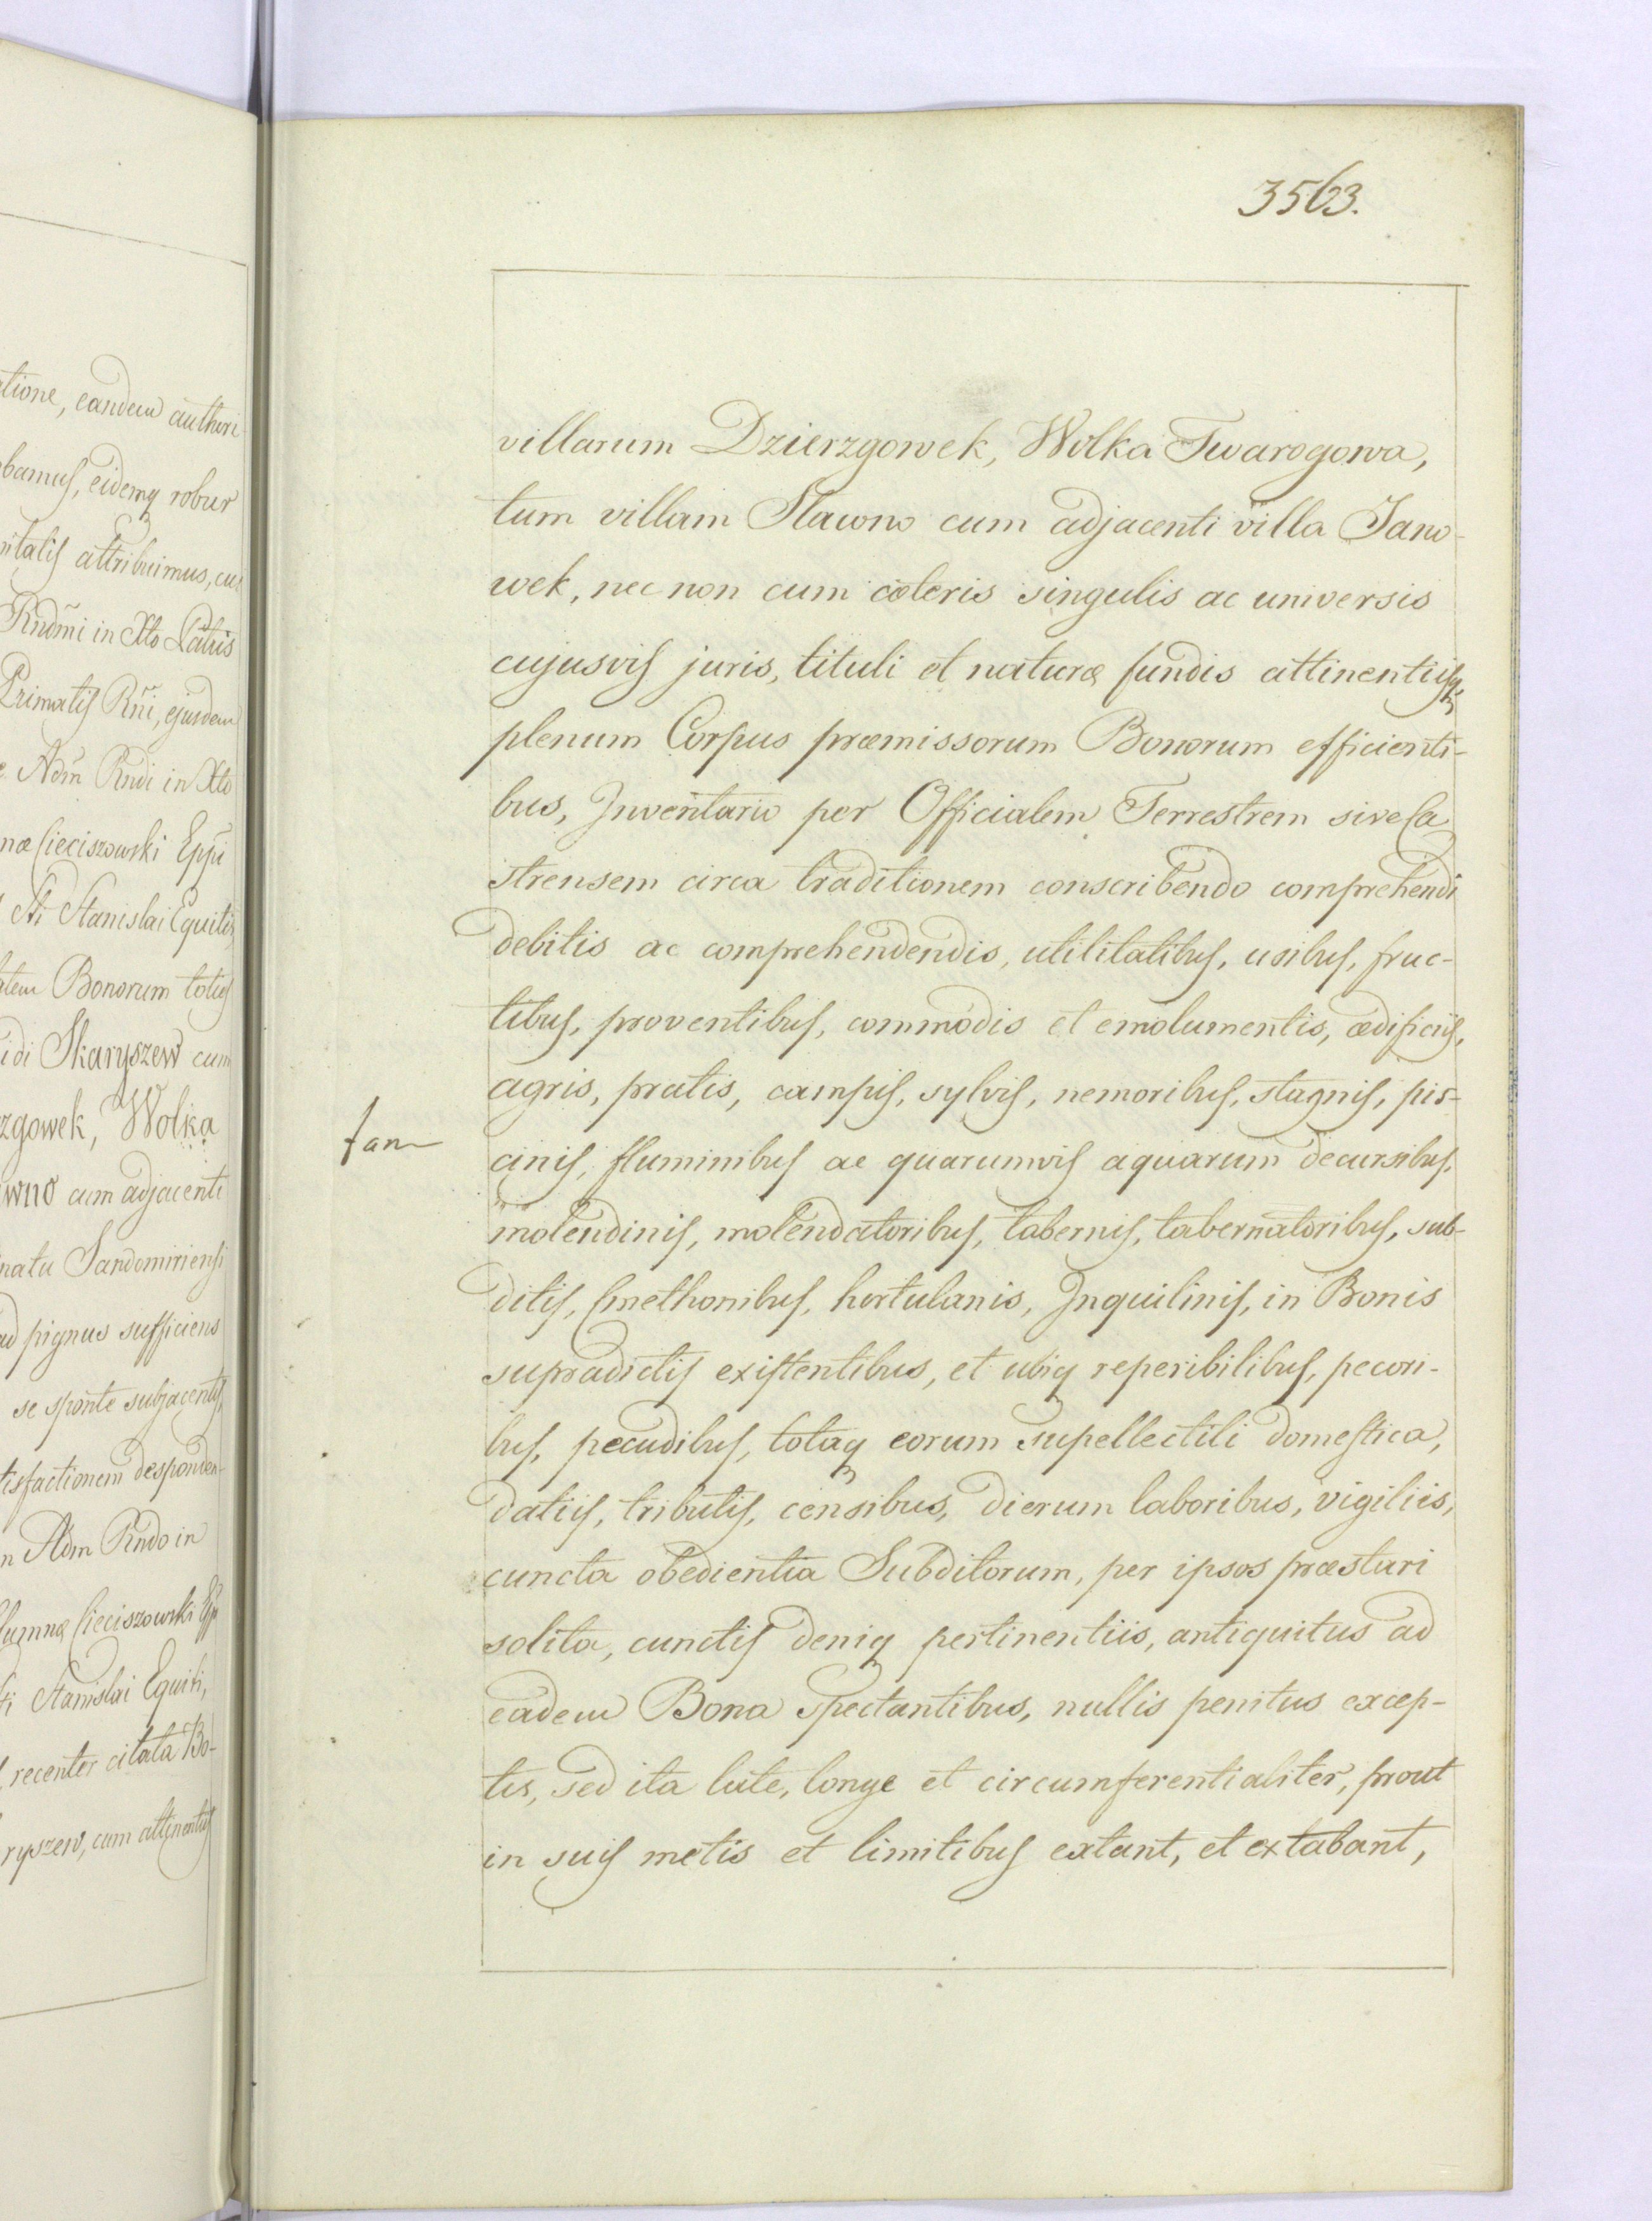 tione, eandem authori
bamus, eidemq robur
pitalis attribuimus, cu
Rndmi in Xto Patris
Primatis Rñi, ejusdem
Adm Rndi in Xto
næ Cieciszowski Eppi
Sti Stanislai Equitis
Bonorum totius
idi Skaryszew cum
zgowek, Wolka
wno cum adjacenti
natu Sandomiriensi
ad pignus sufficiens
se sponte subjacentis,
tisfactionem desponden-
n Adm Rndo in
lumnæ Cieciszowski Epp
ti Stanislai Equiti,
recenter citata Bo-
ryszew, cum attinentiis
3563.
villarum Dzierzgowek, Wolka Twarogowa,
tum villam Sławno cum adjacenti villa Jano-
wek, nec non cum cæteris singulis ac universis
cujusvis juris, tituli et naturæ fundis attinentiisq;
plenum Corpus præmissorum Bonorum efficienti-
bus, Inventario per Officialem Terrestrem sive Ca
strensem circa traditionem conscribendo comprehendi
debitis ac comprehendendis, utilitatibus, usibus, fruc-
tibus, proventibus, commodis et emolumentis, ædificiis,
agris, pratis, campis, sylvis, nemoribus, stagnis, pis-
fan
cinis, fluminibus ac quarumvis aquarum decursibus,
molendinis, molendatoribus, tabernis, tabernatoribus, sub-
ditis, Cmethonibus, hortulanis, Inquilinis, in Bonis
supradictis existentibus, et ubiq reperibilibus, pecori-
bus, pecudibus, totaq eorum supellectili domestica,
datiis, tributis, censibus, dierum laboribus, vigiliis,
cuncta obedientia Subditorum, per ipsos præstari
solita, cunctis deniq pertinentiis, antiquitus ad
eadem Bona spectantibus, nullis penitus excep-
tis, sed ita late, longe et circumferentialiter, prout
in suis metis et limitibus extant, et extabant,